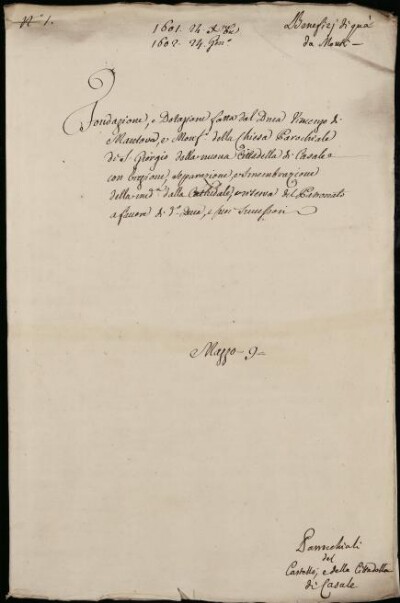 N.° 1.
1601. 24. Xbre
1602. 24. Genn.°
Benefizj di quà
da Monti
Fondazione, e Dotazione fatta dal Duca Vincenzo di
Mantova, e Monf.to della Chiesa Parochiale
di S. Giorgio della nuova Cittadella di Casale
con Erezione, separazione, e smembrazione
della med.a dalla Cattedrale, e riserva del Patronato
a favore di d.o Duca, e suoi Successori
Mazzo 9
Parrochiali
del
Castello, e della Cittadella
di Casale